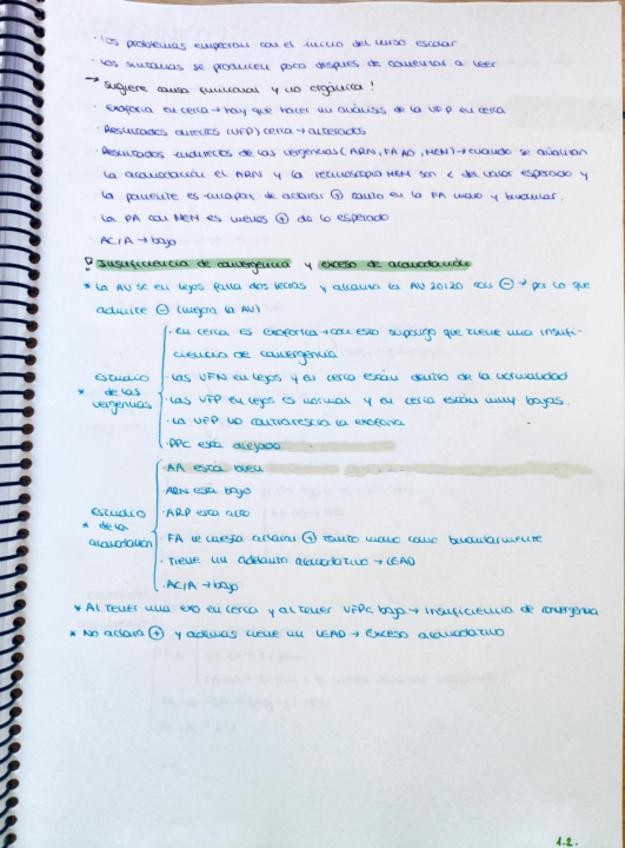 · Los problemas empezaron con el inicio del curso escolar
· Los síntomas se producen poco después de comenzar a leer
→ Sugiere causa funcional y no orgánica!
· Exoforia en cerca → hay que hacer un análisis de la VFP en cerca
· Resultados directos (VFP) cerca → alterados
· Resultados indirectos de las vergencias (ARN, FA AO, MEM) → cuando se evalúan
la acomodación el ARN y la retinoscopia MEM son < del valor esperado y
la paciente es incapaz de aclarar ⊕ tanto en la FA mono y binocular.
· La PA con MEM es menos ⊕ de lo esperado
· AC/A → bajo
Insuficiencia de convergencia y exceso de acomodación
* La AV sc en lejos falla dos letras y alcanza la AV 20/20 con ⊖ → por lo que
admite ⊖ (mejora la AV)
· En cerca es exofórica → con esto supongo que tiene una insufi-
ciencia de convergencia
* Estudio de las vergencias
· Las VFN en lejos y en cerca están dentro de la normalidad
· Las VFP en lejos es normal y en cerca están muy bajas.
· La VFP no contrarresta la exoforia
· PPC está alejado
· AA está bien
· ARN está bajo
* Estudio de la acomodación
· ARP está alto
· FA le cuesta aclarar ⊕ tanto mono como binocularmente
· Tiene un adelanto acomodativo → LEAD
· AC/A → bajo
* Al tener una exo en cerca y al tener VFPc bajo → insuficiencia de convergencia
* No aclara ⊕ y además tiene un LEAD → exceso acomodativo
1.2.